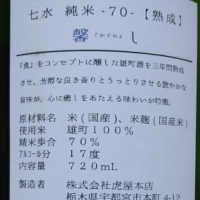 七水 純米 -70-【熟成】
馨し
『食』をコンセプトに醸した雄町酒を三年間熟成
させ、芳醇な良き香りとうっとりさせる艶やかな
旨味が、心に癒しをあたえる味わいが特徴。
原材料名 米(国産)、米麹(国産米)
使用米 雄町100%
精米歩合 70%
アルコール分 17度
内容量 720mL
製造者 株式会社虎屋本店
栃木県宇都宮市本町4-12